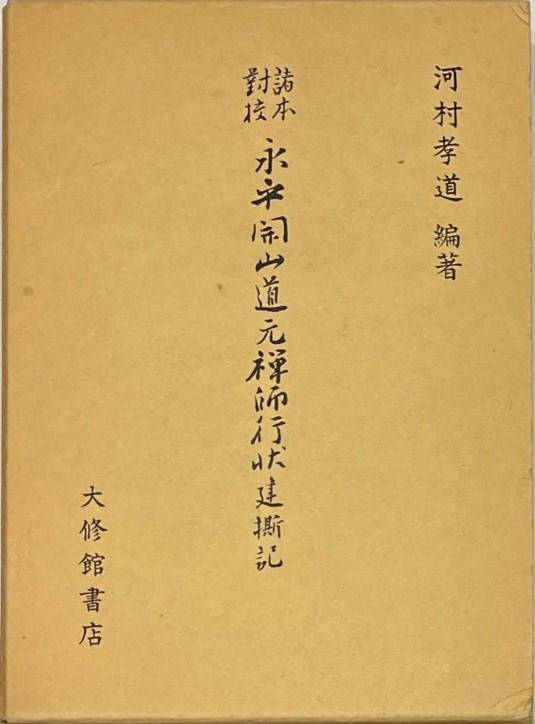 河村孝道 編著
諸本
對校
永平開山道元禅師行状建撕記
大修館書店